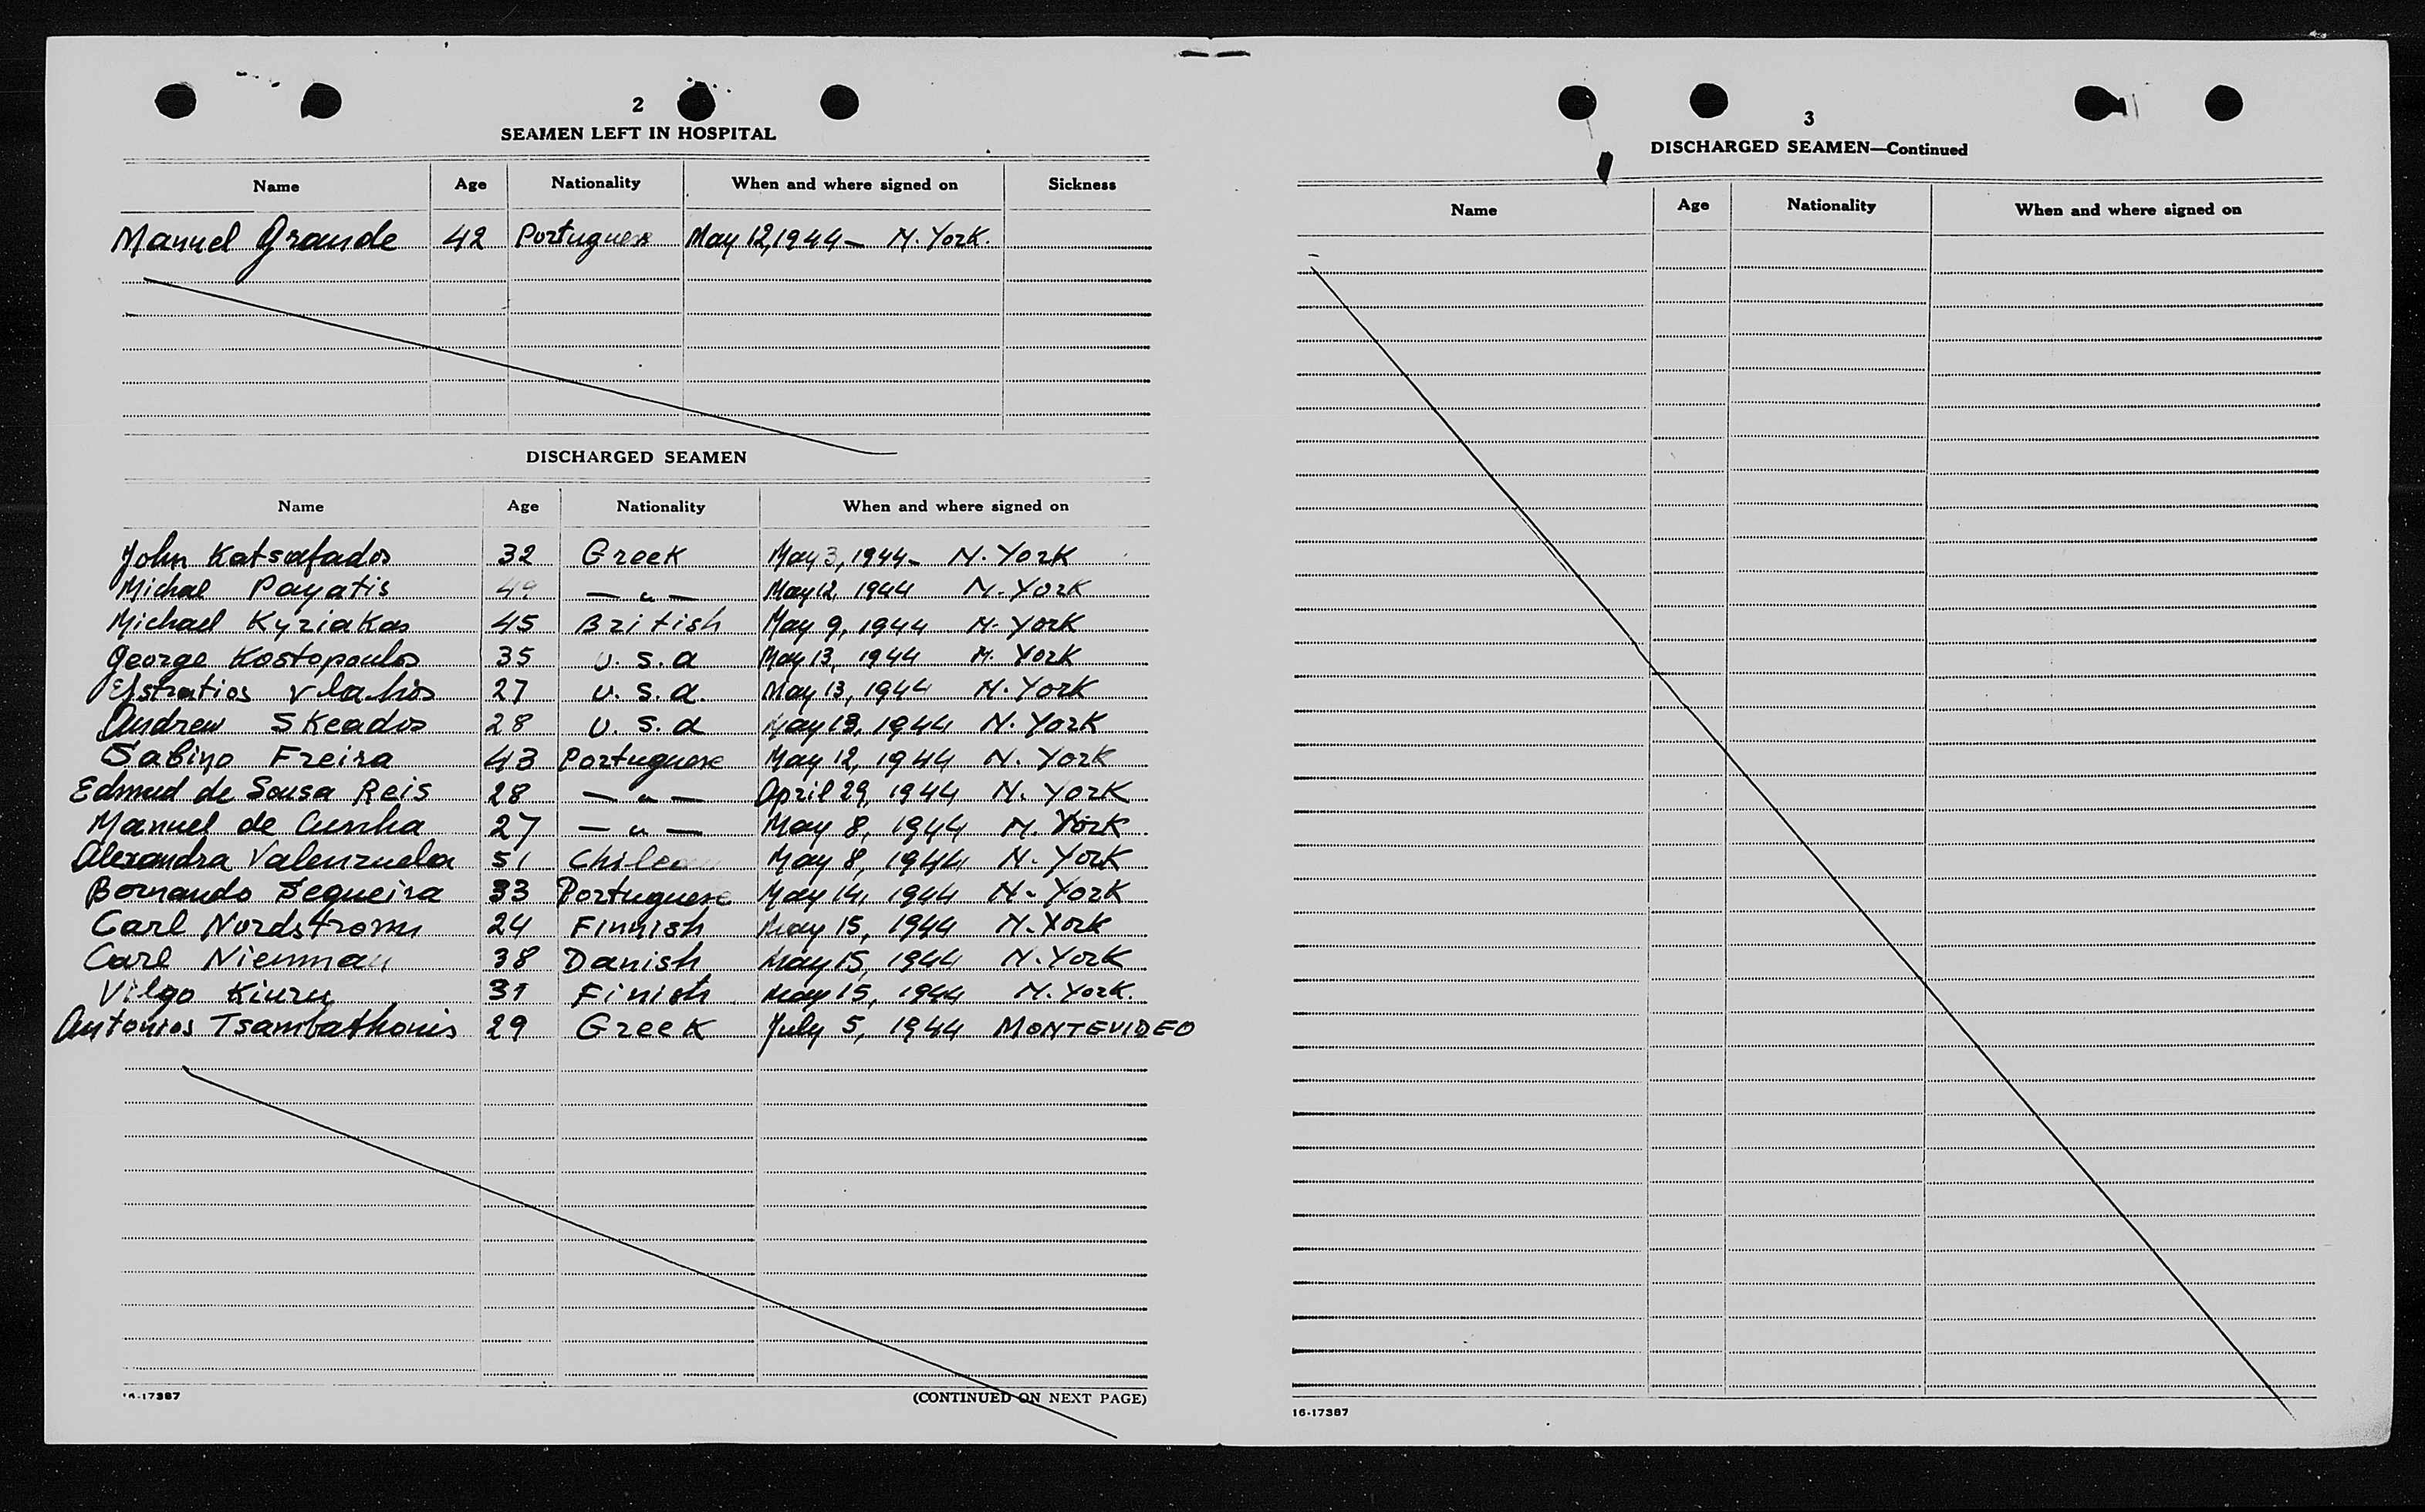 2
SEAMEN LEFT IN HOSPITAL
Name Age Nationality When and where signed on Sickness
Manuel Grande 42 Portuguese May 12, 1944 – N. York.
DISCHARGED SEAMEN
Name Age Nationality When and where signed on
John Katsafados 32 Greek May 3, 1944 – N. York
Michal Payatis — " — May 12, 1944 N. York
Michael Kyriakos 45 British May 9, 1944 N. York
George Kostopoulos 35 U.S.A May 13, 1944 N. York
Efstratios Vlahos 27 U.S.A. May 13, 1944 N. York
Andrew Skeados 28 U.S.A May 13, 1944 N. York
Sabino Freira 43 Portuguese May 12, 1944 N. York
Edmud de Sousa Reis 28 — " — April 29, 1944 N. York
Manuel de Cunha 27 — " — May 8, 1944 N. York
Alexandra Valenzuela 51 Chilean May 8, 1944 N. York
Bernando Sequeira 33 Portuguese May 14, 1944 N. York
Carl Nordstrom 24 Finnish May 15, 1944 N. York
Carl Nienman 38 Danish May 15, 1944 N. York
Vilgo Kiuru 31 Finish May 15, 1944 N. York.
Antonios Tsambathonis 29 Greek July 5, 1944 MONTEVIDEO
16-17387
(CONTINUED ON NEXT PAGE)
3
DISCHARGED SEAMEN—Continued
Name Age Nationality When and where signed on
16-17387